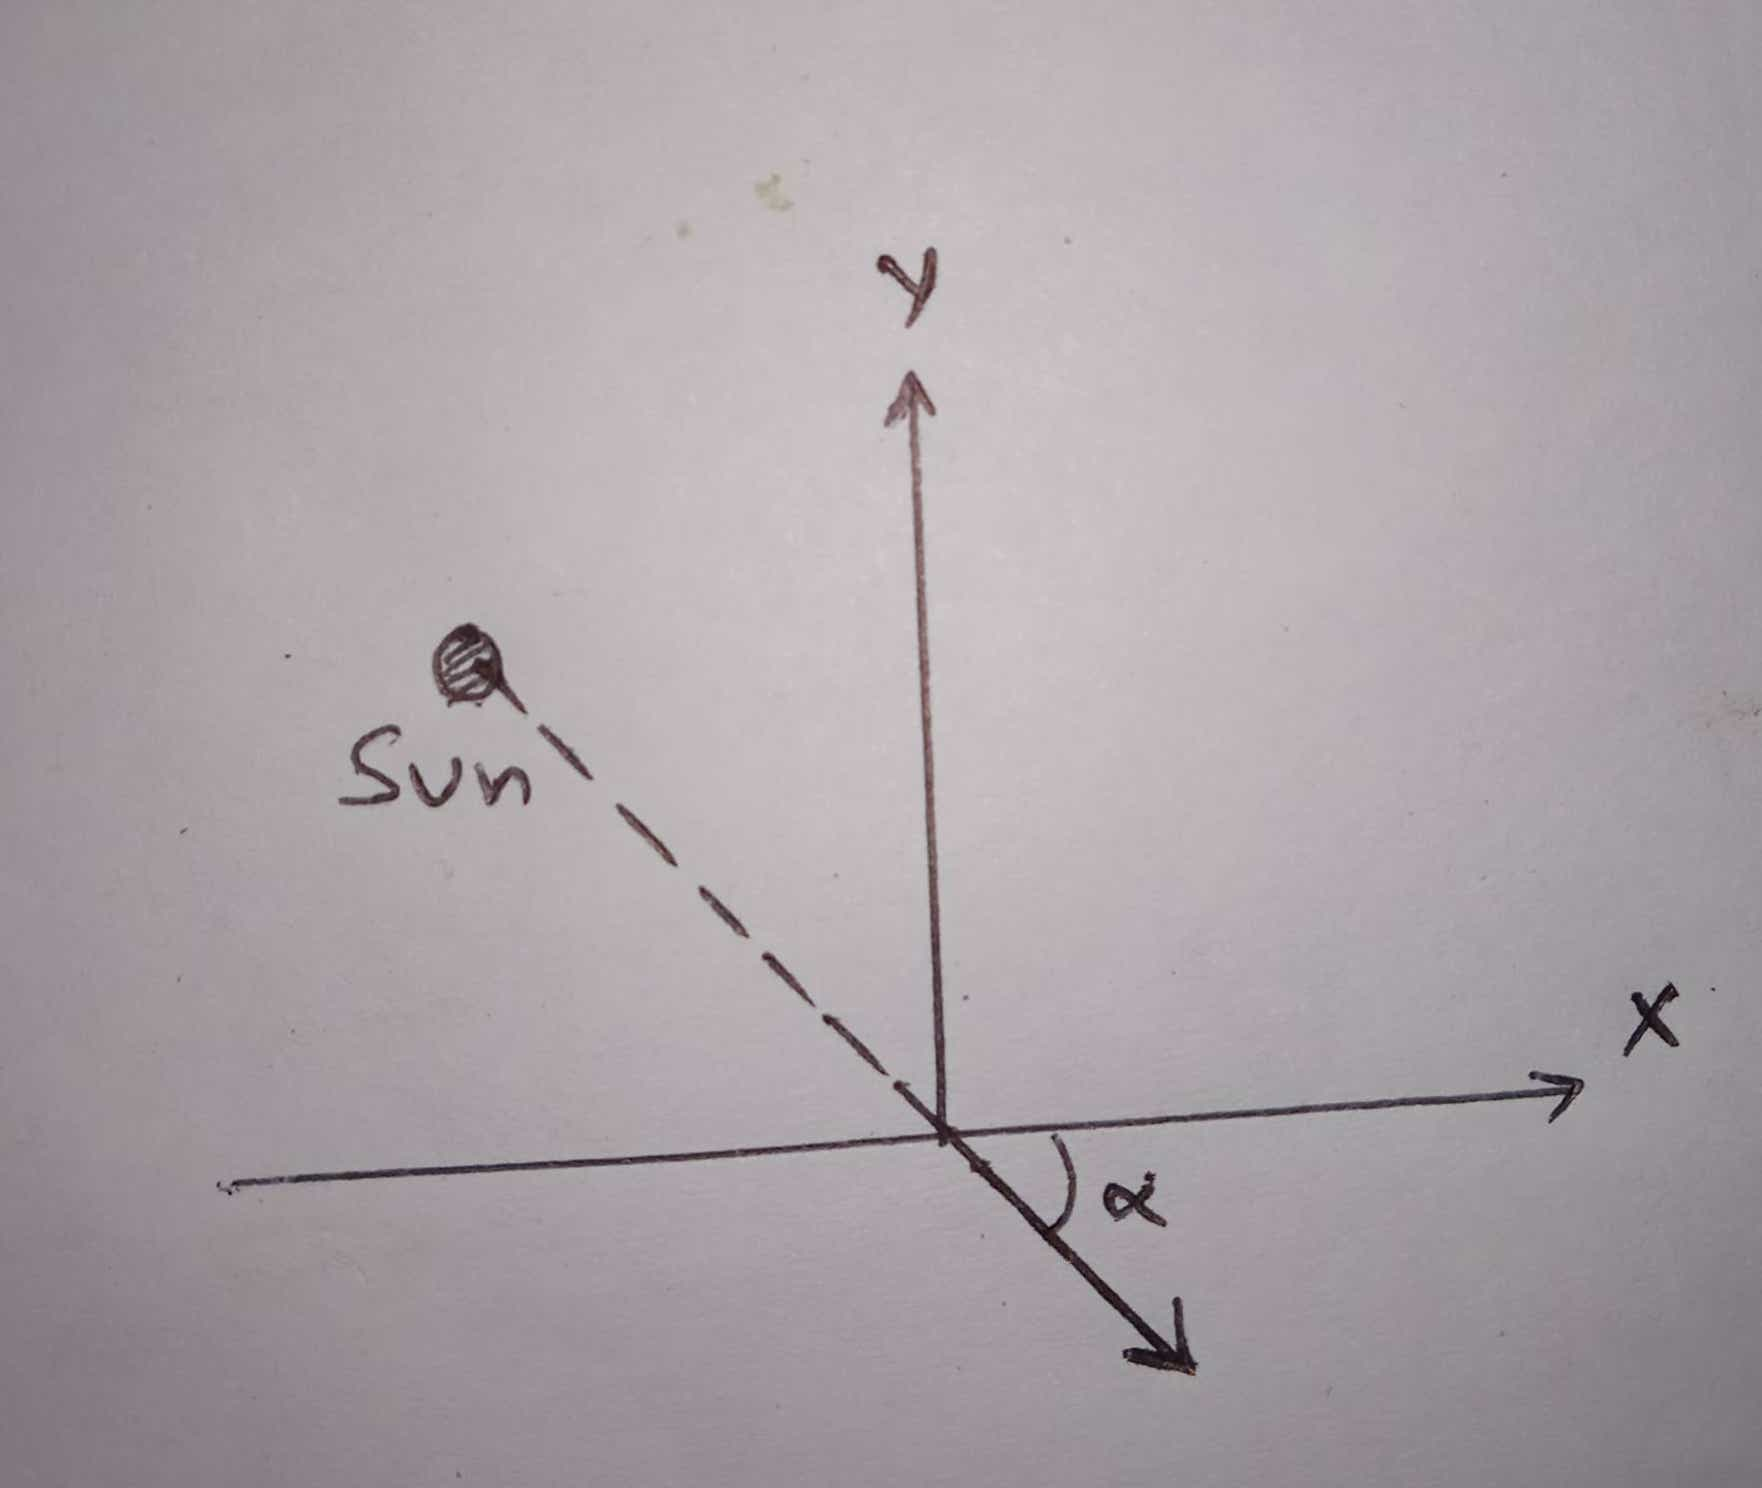 Y
Sun
X
α